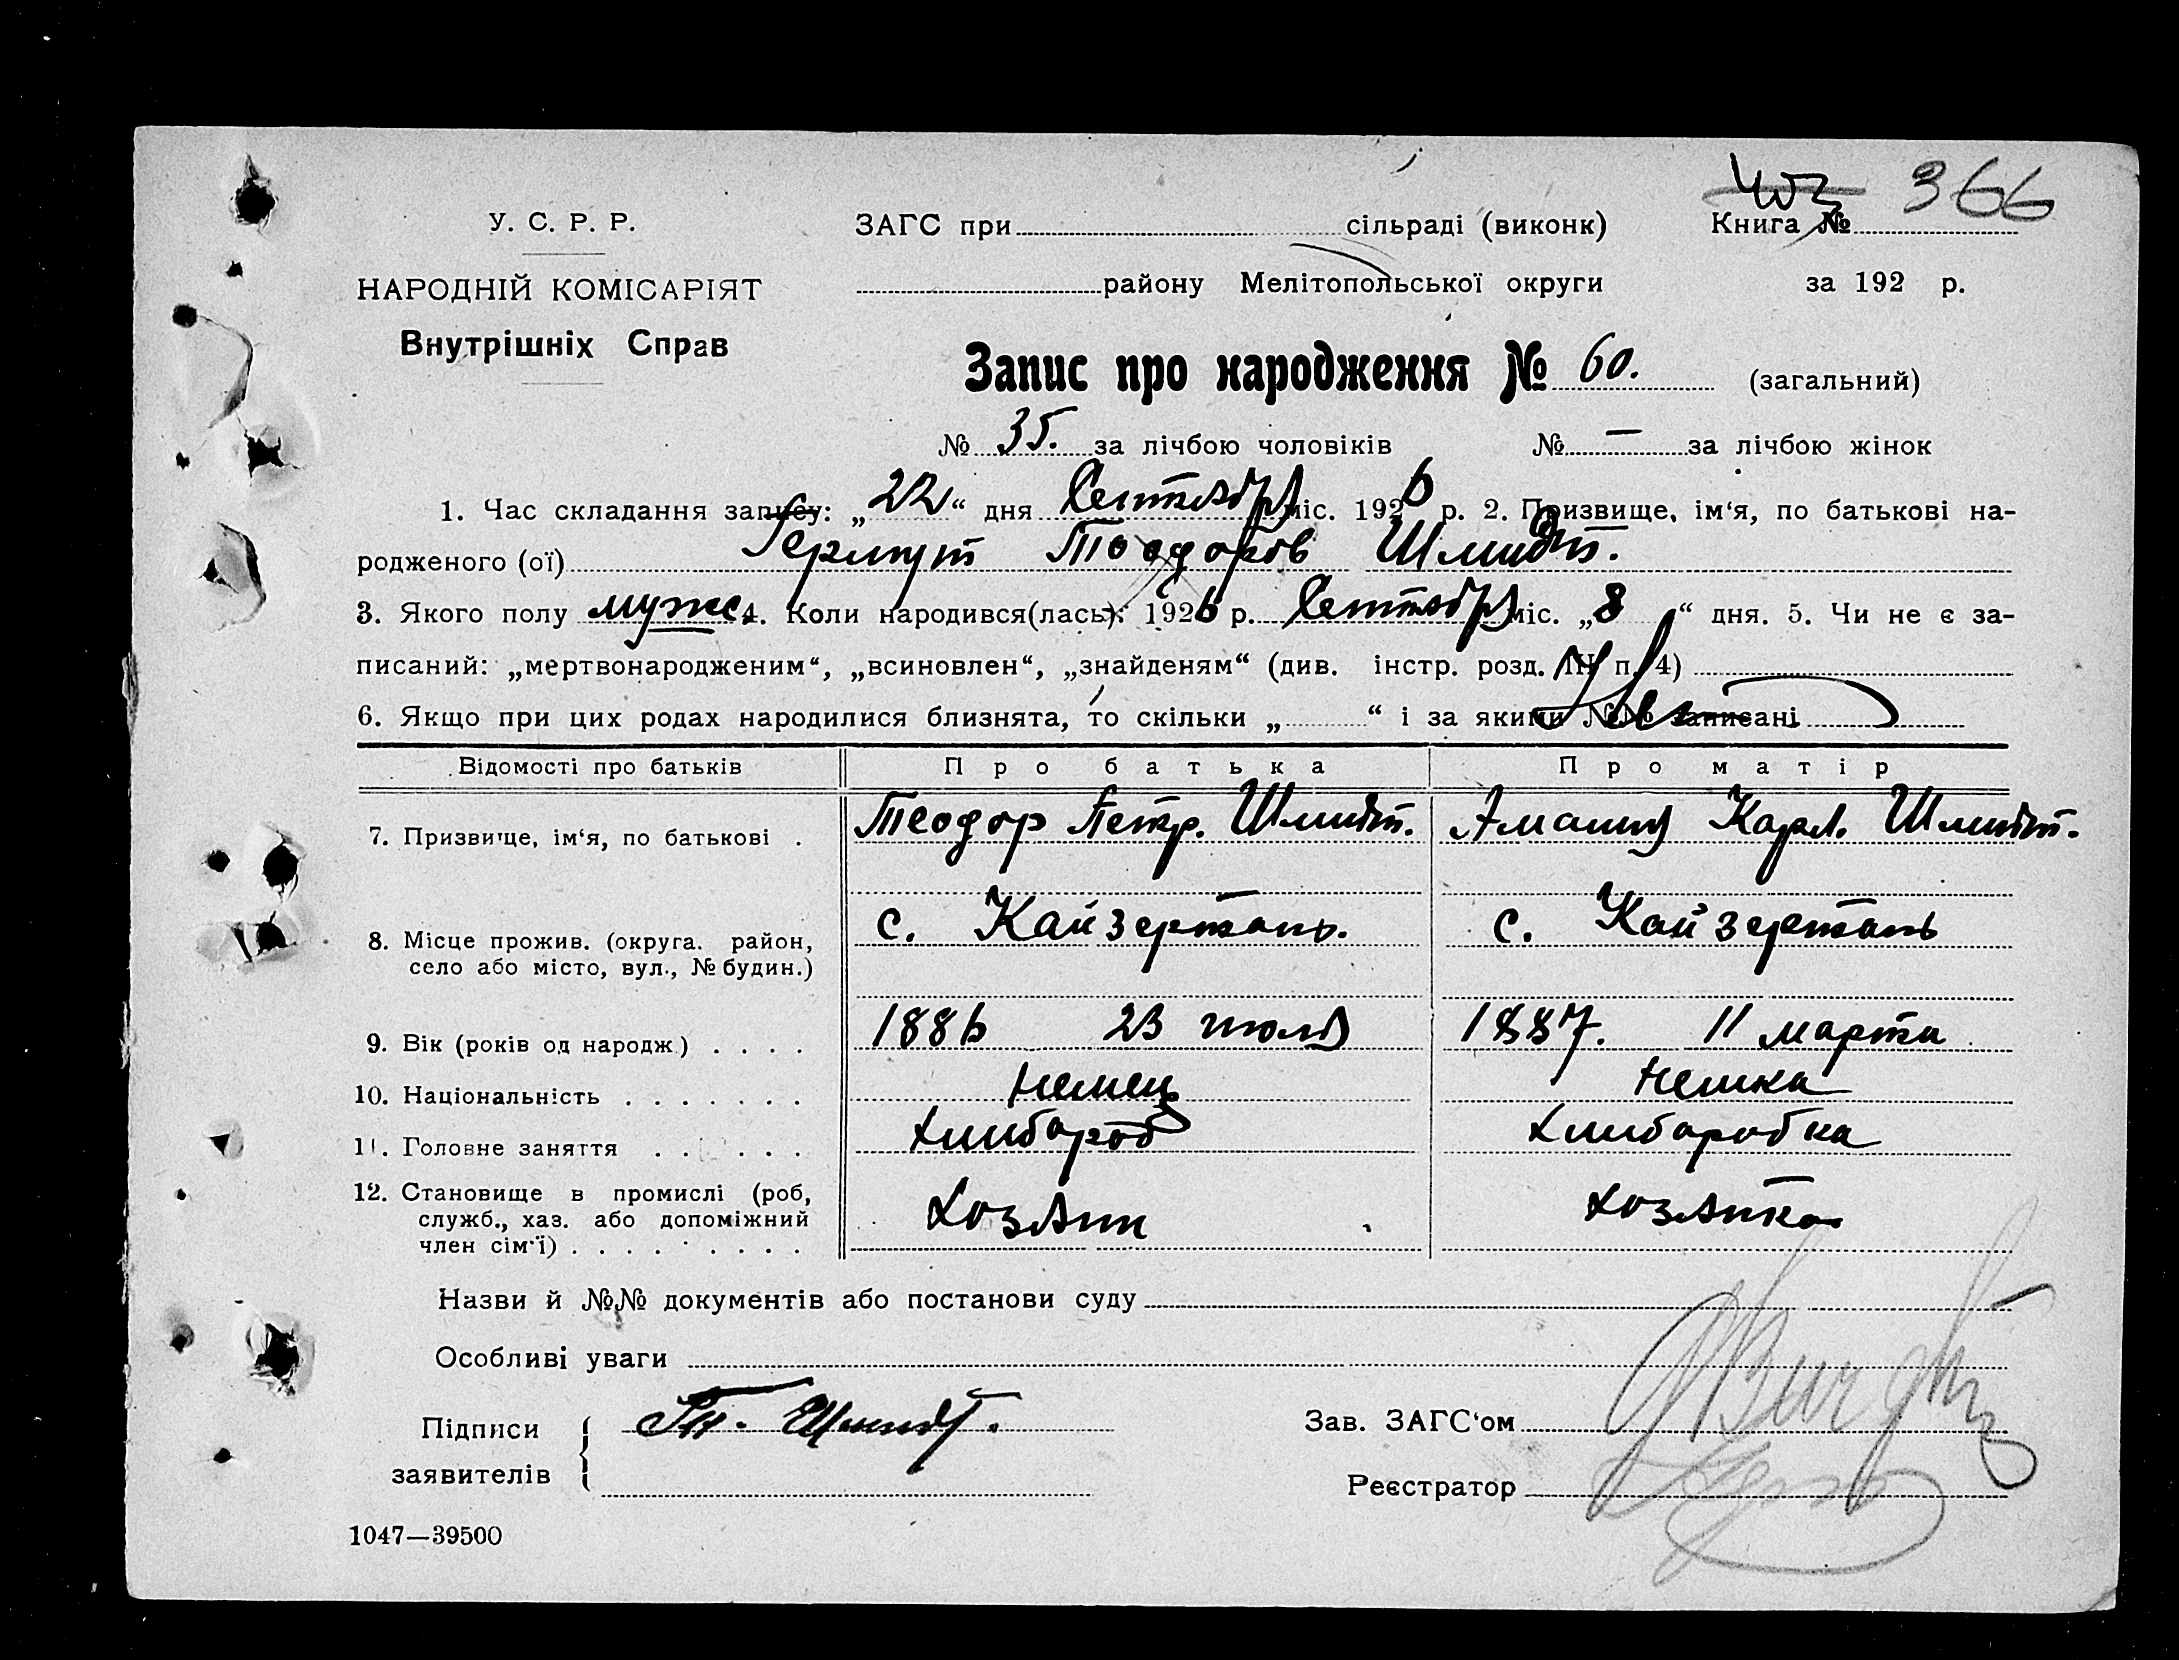 403 366
У. С. Р. Р. ЗАГС при сільраді (виконк) Книга №
НАРОДНІЙ КОМІСАРІЯТ району Мелітопольської округи за 192 р.
Внутрішніх Справ
Запис про народження № 60. (загальний)
№ 35. за лічбою чоловіків № — за лічбою жінок
1. Час складання запису: „22“ дня Сентября міс. 1926 р. 2. Призвище, ім‘я, по батькові на-
родженого (ої) Гермут Теодоров Шмидт.
3. Якого полу мужс. 4. Коли народився(лась): 1926 р. Сентября міс. „8“ дня. 5. Чи не є за-
писаний: „мертвонародженим“, „всиновлен“, „знайденям“ (див. інстр. розд. III п. 4)
6. Якщо при цих родах народилися близнята, то скільки „ “ і за якими №№ записані
Відомості про батьків Про батька Про матір
7. Призвище, ім‘я, по батькові . Теодор Петр. Шмидт. Амалия Карл. Шмидт.
8. Місце прожив. (округа. район, с. Кайзерталь. с. Кайзерталь
село або місто, вул., № будин.)
9. Вік (років од народж.) . . . . 1886 23 июля 1887. 11 марта
10. Національність . . . . . . . немец немка
11. Головне заняття . . . . . . хлибароб хлибаробка
12. Становище в промислі (роб, хозяин хозяйка
служб., хаз. або допоміжний
член сім‘ї) . . . . . . . . .
Назви й №№ документів або постанови суду
Особливі уваги
Підписи Шмидт. Зав. ЗАГС‘ом
заявителів Реєстратор
1047—39500